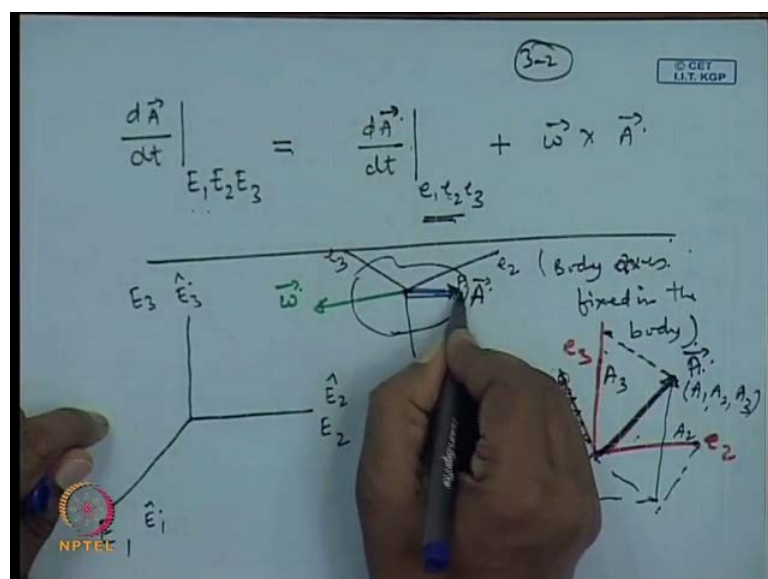 3-2
© CET
I.I.T. KGP
dA⃗/dt |E₁E₂E₃ = dA⃗/dt |e₁e₂e₃ + ω⃗ × A⃗.
e₃
e₂ (Body axes.
fixed in the
body)
E₃ Ê₃
ω⃗
A⃗.
e₃
A₃
A⃗.
(A₁, A₂, A₃)
Ê₂
E₂
A₂
e₂
Ê₁
E₁
NPTEL